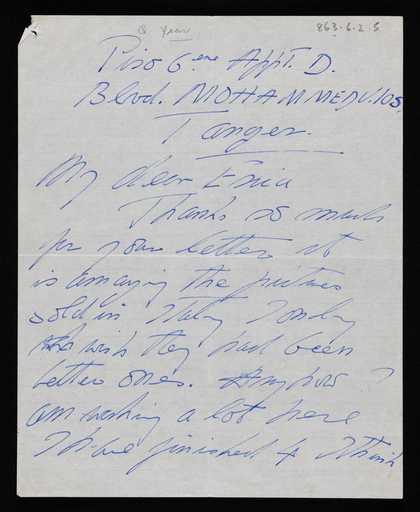 Q Year
863.6.2.5
Piso 6eme Appt. D.
Blvd. MOHAMMED V. 105
Tanger.
My dear Erica
Thanks so much
for your letter it
is amazing the pictures
sold in Italy I only
wish they had been
better ones. Anyhow I
am working a lot here
I have finished 4 I think